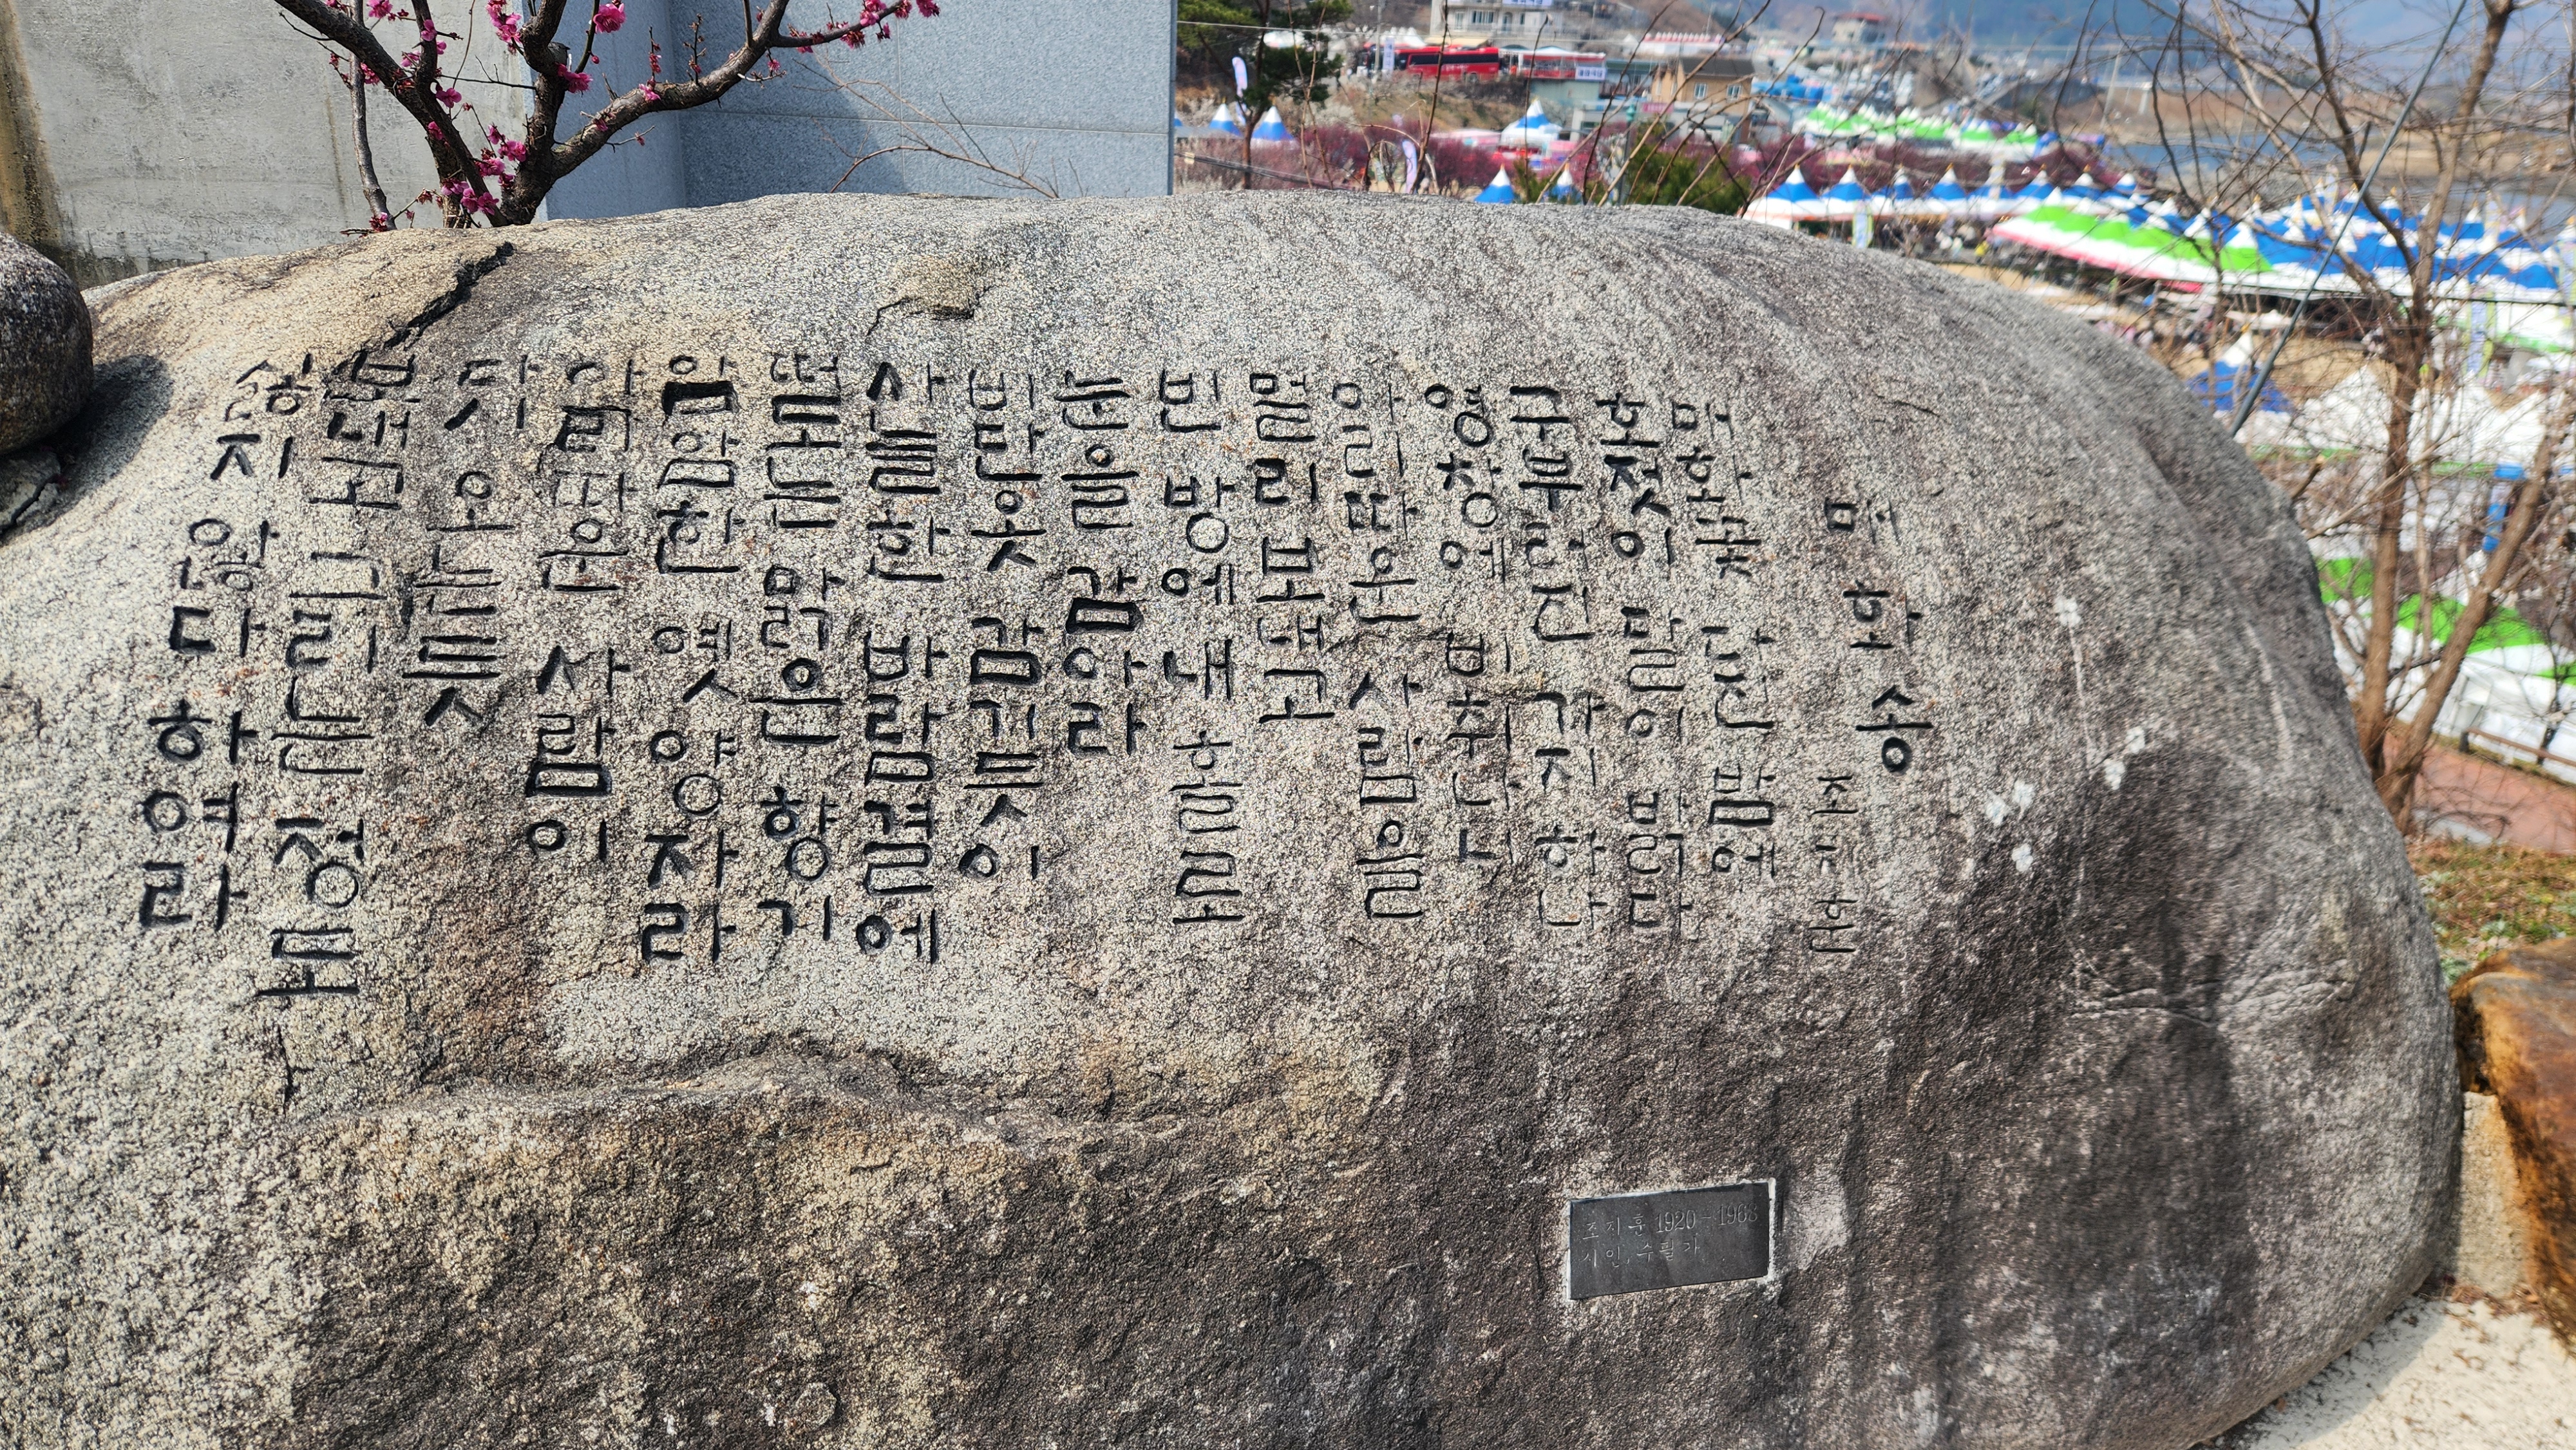 매화송
조지훈
매화꽃 다진 밤에
호젓이 달이 밝다
구부러진 가지 하나
영창에 비취나니
아리따운 사람을
멀리 보내고
빈 방에 내 홀로
눈을 감아라
비단옷 감기듯이
사늘한 바람결에
떠도는 맑은 향기
암암한 옛 양자라
아리따운 사람이
다시 오는 듯
보내고 그리는 정도
싫지 않다 하여라
조지훈 1920-1968
시인, 수필가